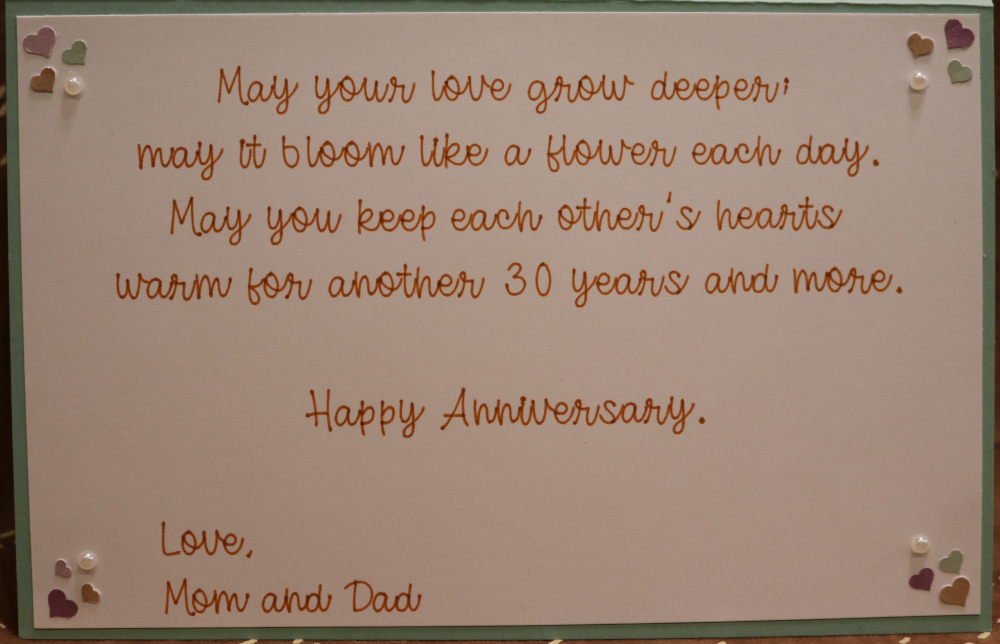 May your love grow deeper;
may it bloom like a flower each day.
May you keep each other's hearts
warm for another 30 years and more.
Happy Anniversary.
Love,
Mom and Dad